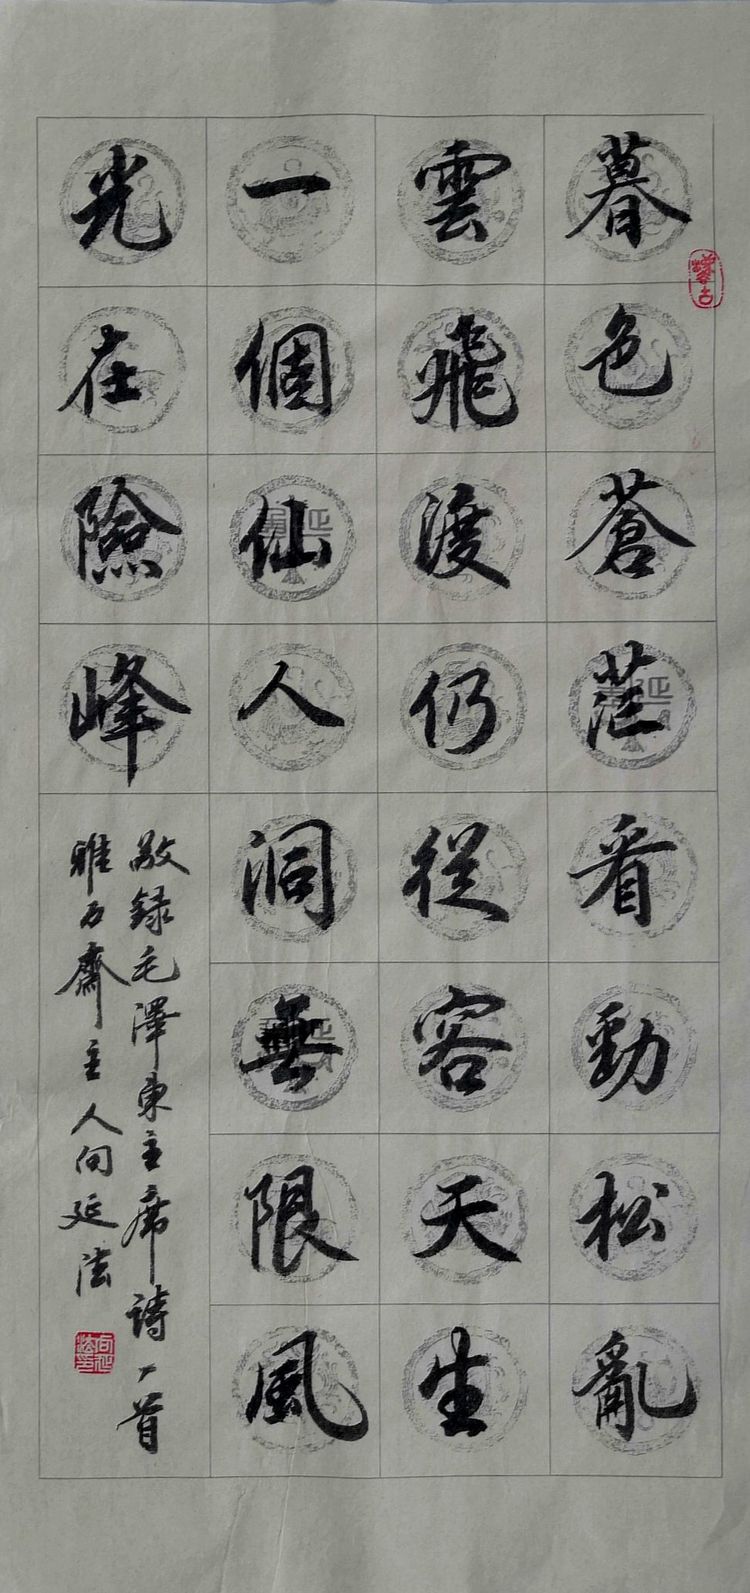 暮色蒼茫看勁松亂
雲飛渡仍從容天生
一個仙人洞無限風
光在險峰
敬録毛澤東主席詩一首
雅石齋主人向延法